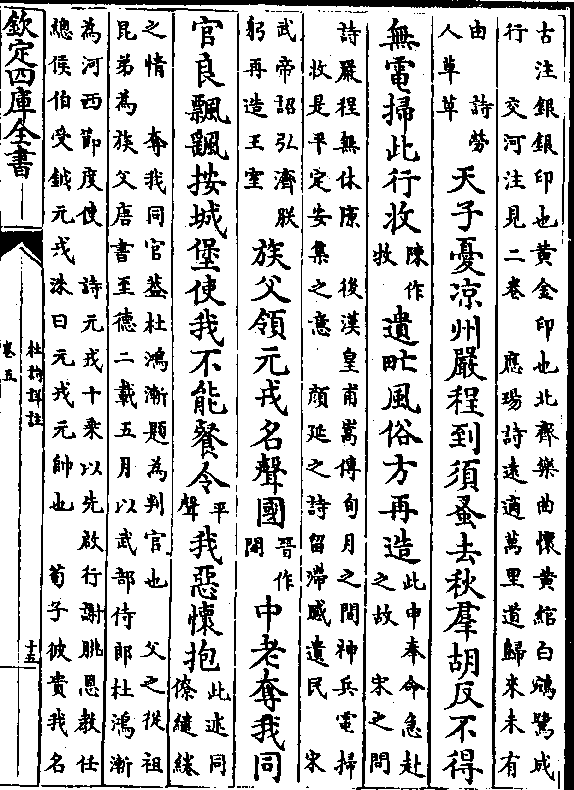 古注銀銀印也黃金印也北齊樂曲懷黃綰白鵷鷺成
行 交河注見二卷 應瑒詩遠適萬里道歸來未有
由 詩勞
人草草
天子憂涼州嚴程到須蚤去秋羣胡反不得
無電掃此行收
陳作
牧
遺甿風俗方再造
此申奉命急赴
之故 宋之問
詩嚴程無休隙 後漢皇甫嵩傳旬月之間神兵電掃
牧是平定安集之意 顔延之詩留滯感遺民 宋
武帝詔弘濟朕
躬再造王室
族父領元戎名聲國
晉作
閣
中老奪我同
官良飄颻按城堡使我不能餐令
平
聲
我惡懷抱
此述同
僚繾綣
之情 奪我同官蓋杜鴻漸題為判官也 父之從祖
昆弟為族父唐書至德二載五月以武部侍郎杜鴻漸
為河西節度使 詩元戎十乗以先啟行謝朓恩教任
總侯伯受鉞元戎洙曰元戎元帥也 荀子彼貴我名
欽定四庫全書
杜詩詳註
卷五
十五